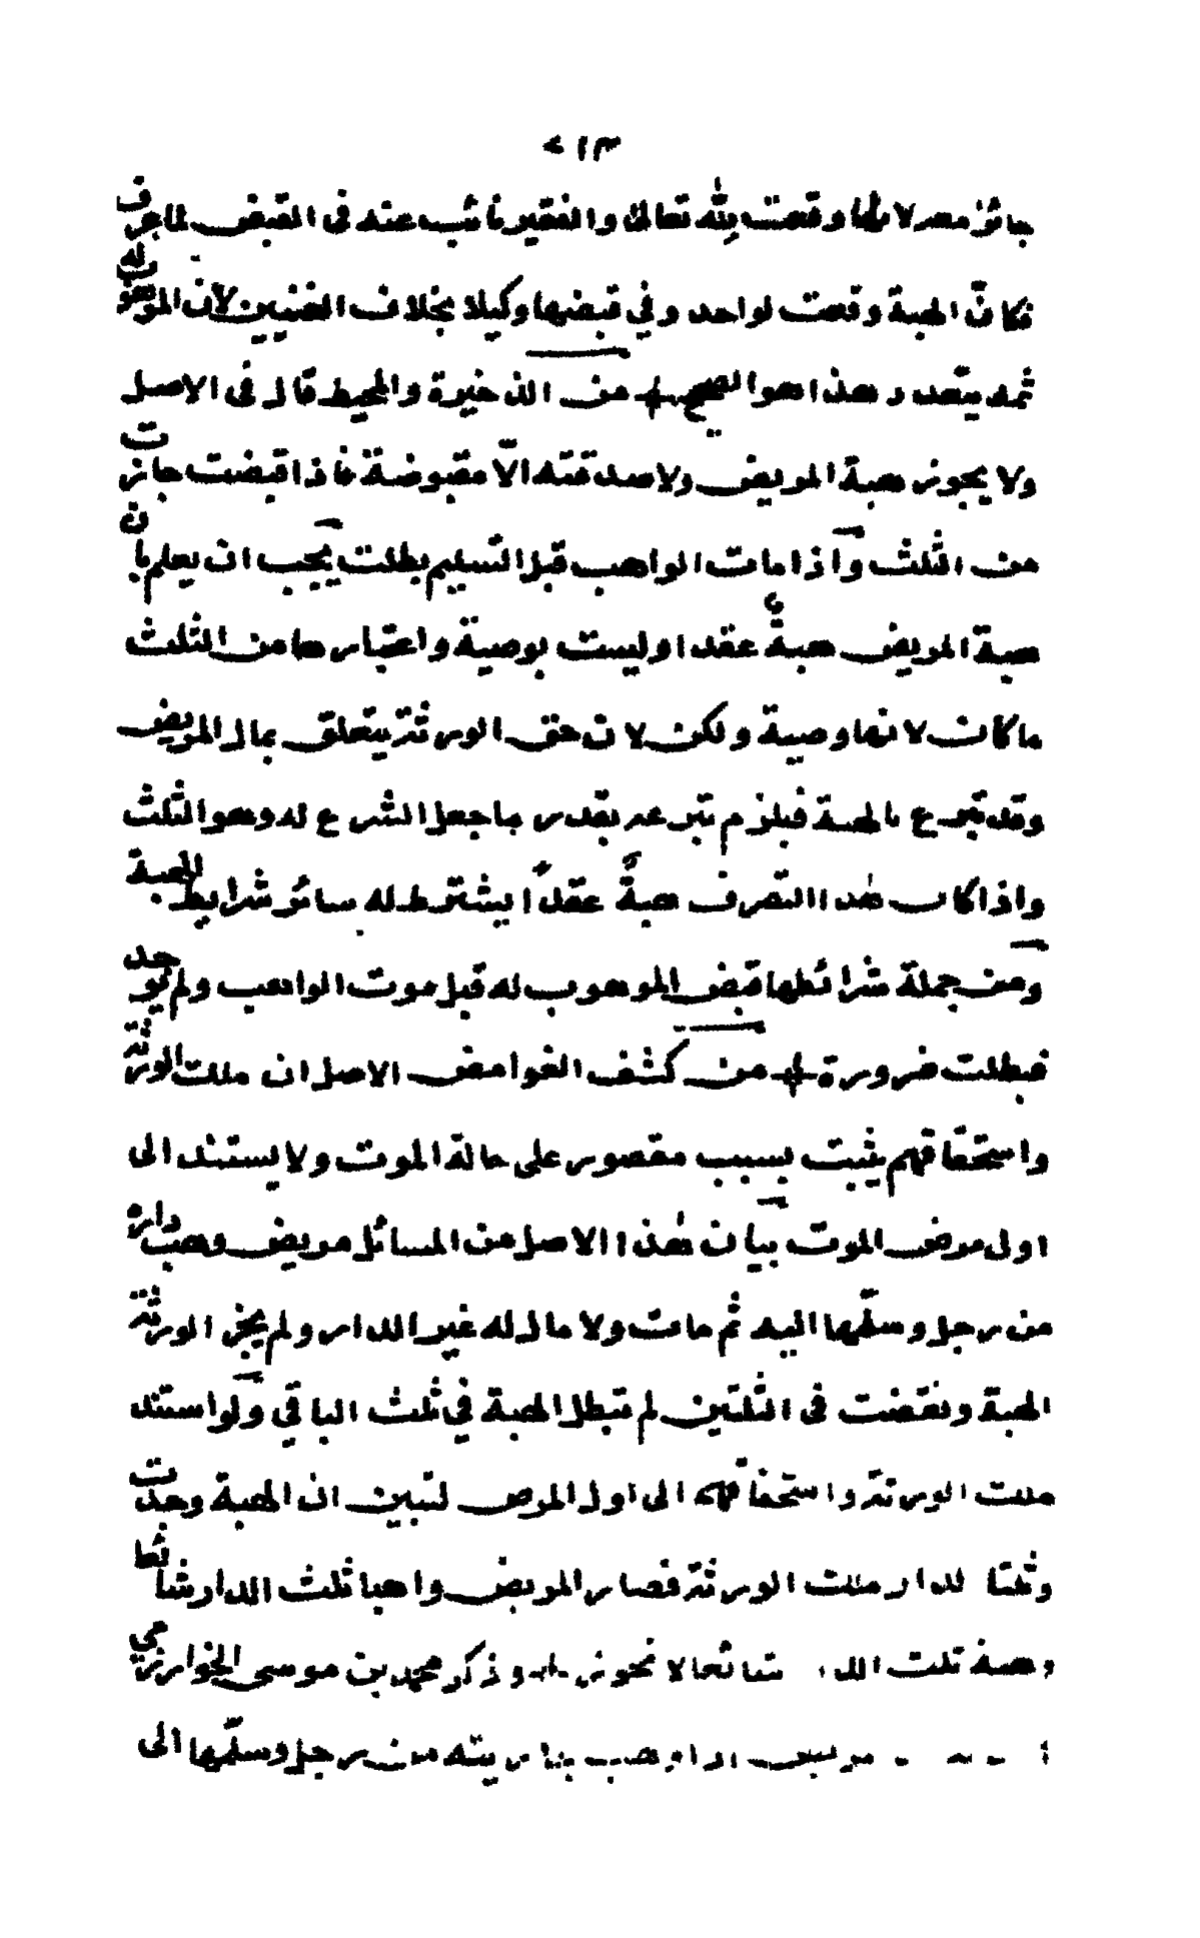 ٧١٣
جائز معه لانها وقعت لله تعالى والفقير نائب عنه فى القبض لما عرف
فكانّ الهبة وقعت لواحد وفي قبضها وكيلا بخلاف الغنيين لان الموهوب له
ثمه يتعدد وهذا هو الصحيح من الذخيرة والمحيط قال فى الاصل
ولا يجوز هبة المريض ولا صدقته الّا مقبوضة فاذا قبضت جازت
من الثلث وآذا مات الواهب قبل التسليم بطلت يجب ان يعلم بان
هبة المريض هبةٌ عقدا وليست بوصية واعتبارها من الثلث
ما كان لانها وصية ولكن لان حق الورثة يتعلق بمال المريض
وقد تبرع بالهبة فيلزم تبرعه بقدر ما جعل الشرع له وهو الثلث
واذا كان هذا التصرف هبةً عقدًا يشترط له سائر شرايط الهبة
ومن جملة شرائطها قبض الموهوب له قبل موت الواهب ولم يوجد
فبطلت ضرورة من كشف الغوامض الاصل ان ملك الورثة
واستحقاقهم يثبت بسبب مقصور على حالة الموت ولا يستند الى
اول مرض الموت بيان هذا الاصل من المسائل مريض وهب داره
من رجل وسلّمها اليه ثم مات ولا مال له غير الدار ولم يجز الورثة
الهبة ونقضت فى الثلثين لم تبطل الهبة في ثلث الباقي ولو استند
ملك الورثة واستحقاقهم الى اول المرض لتبين ان الهبة وجدت
وثلثا الدار ملك الورثة فصار المريض واهبا ثلث الدار شائعا
وهبة ثلث الدار شائعا لا تجوز وذكر محمد بن موسى الخوارزمي
مريض اذا وهب جاريته من رجل وسلّمها الى